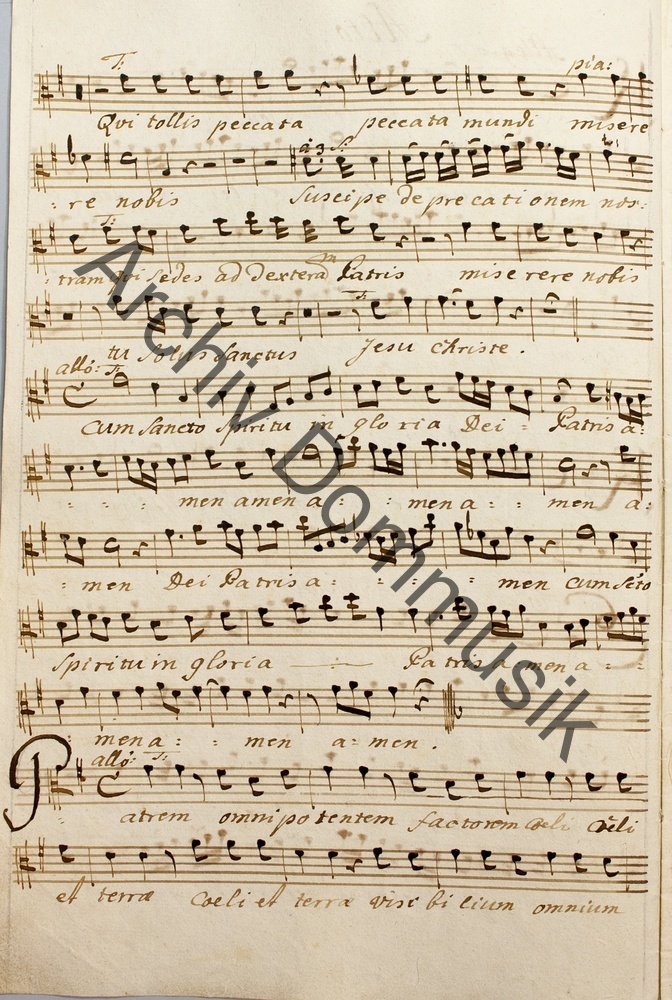 T: pia:
Qvi tollis peccata peccata mundi misere
à 3 S:
: re nobis Suscipe deprecationem nos:
T:
: tram qvi Sedes ad dexteram Patris miserere nobis
T:
tu Solus Sanctus Jesu Christe.
allo: T:
Cum Sancto Spiritu in gloria Dei = Patris a:
: : : men amen a : : men a : : men a:
: men Dei Patris a : : : : men cum Scto
Spiritu in gloria Patris a men a : :
men a : : : men a = men.
allo: T:
Patrem omnipotentem factorem Coeli Coeli
et terræ Coeli et terræ visibilium omnium
Archiv Dommusik